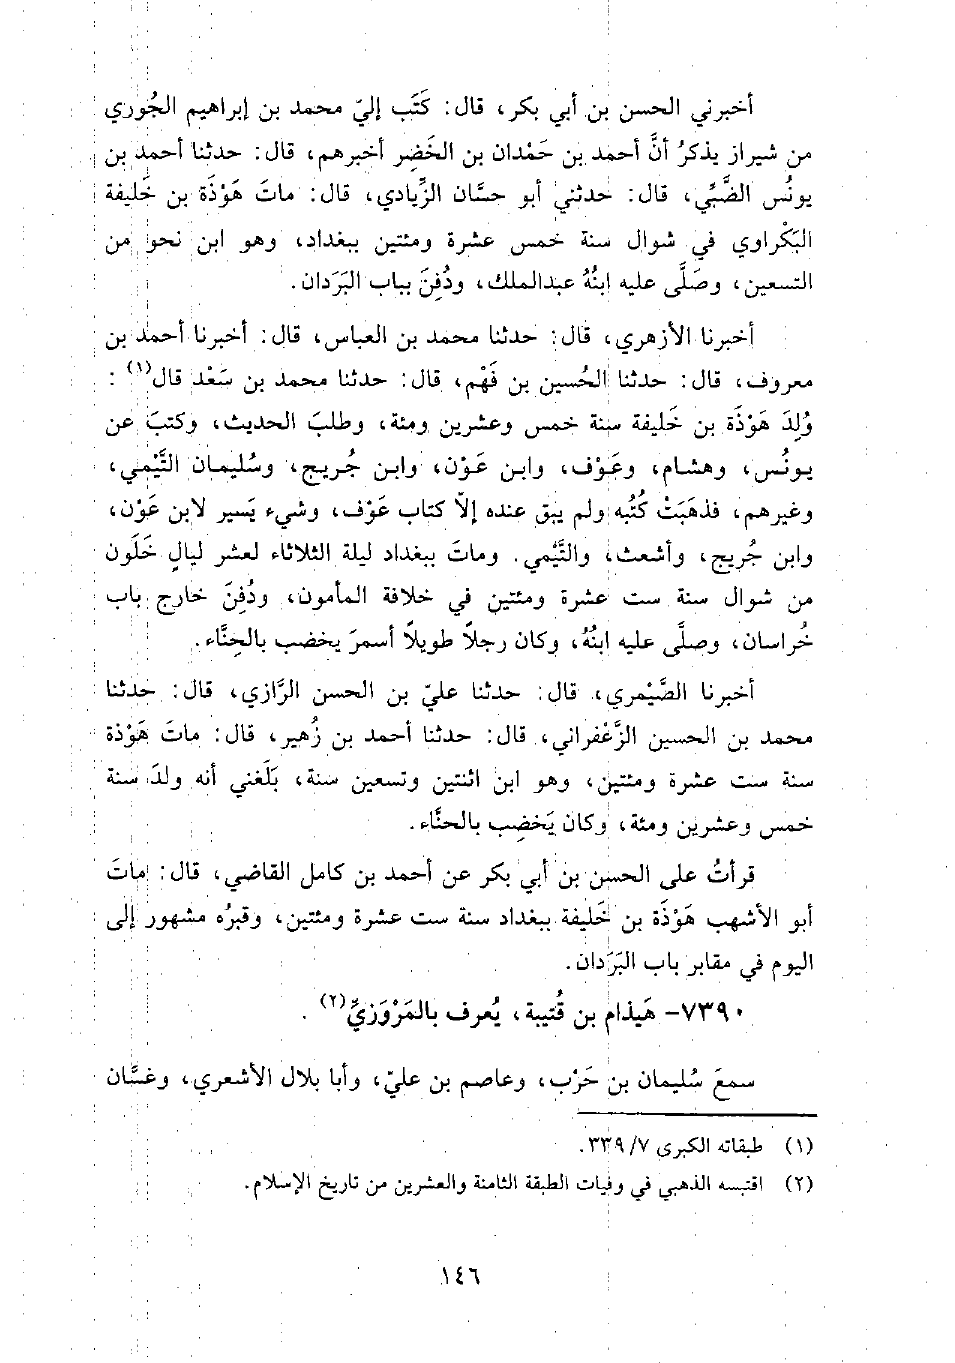 أخبرني الحسن بن أبي بكر، قال: كَتَب إليّ محمد بن إبراهيم الجُوري
من شيراز يذكرُ أنَّ أحمد بن حَمْدان بن الخَضِر أخبرهم، قال: حدثنا أحمد بن
يونُس الضَّبِّي، قال: حدثني أبو حسَّان الزِّيادي، قال: ماتَ هَوْذَة بن خَليفة
البَكْراوي في شوال سنة خمس عشرة ومئتين ببغداد، وهو ابن نحو من
التسعين، وصَلَّى عليه ابنُهُ عبدالملك، ودُفِنَ بباب البَرَدان.
أخبرنا الأزهري، قال: حدثنا محمد بن العباس، قال: أخبرنا أحمد بن
معروف، قال: حدثنا الحُسين بن فَهْم، قال: حدثنا محمد بن سَعْد قال(١) :
وُلِدَ هَوْذَة بن خَليفة سنة خمس وعشرين ومئة، وطلبَ الحديث، وكتبَ عن
يونُس، وهشام، وعَوْف، وابن عَوْن، وابن جُريج، وسُليمان التَّيْمي،
وغيرهم، فذهَبَتْ كُتُبه ولم يبق عنده إلاّ كتاب عَوْف، وشيء يَسير لابن عَوْن،
وابن جُريج، وأشعث، والتَّيْمي. وماتَ ببغداد ليلة الثلاثاء لعشر ليالٍ خَلَون
من شوال سنة ست عشرة ومئتين في خلافة المأمون، ودُفِنَ خارج باب
خُراسان، وصلَّى عليه ابنُهُ، وكان رجلاً طويلاً أسمرَ يخضب بالحِنَّاء.
أخبرنا الصَّيْمري، قال: حدثنا عليّ بن الحسن الرَّازي، قال: حدثنا
محمد بن الحسين الزَّعْفراني، قال: حدثنا أحمد بن زُهير، قال: ماتَ هَوْذة
سنة ست عشرة ومئتين، وهو ابن اثنتين وتسعين سنة، بَلَغني أنه ولدَ سنة
خمس وعشرين ومئة، وكان يَخضِب بالحنَّاء.
قرأتُ على الحسن بن أبي بكر عن أحمد بن كامل القاضي، قال: ماتَ
أبو الأشهب هَوْذَة بن خَليفة ببغداد سنة ست عشرة ومئتين، وقبرُه مشهور إلى
اليوم في مقابر باب البَرَدان.
٧٣٩٠- هَيذام بن قُتيبة، يُعرف بالمَرْوَزيِّ(٢) .
سمعَ سُليمان بن حَرْب، وعاصم بن عليّ، وأبا بلال الأشعري، وغسَّان
(١) طبقاته الكبرى ٧/ ٣٣٩.
(٢) اقتبسه الذهبي في وفيات الطبقة الثامنة والعشرين من تاريخ الإسلام.
١٤٦